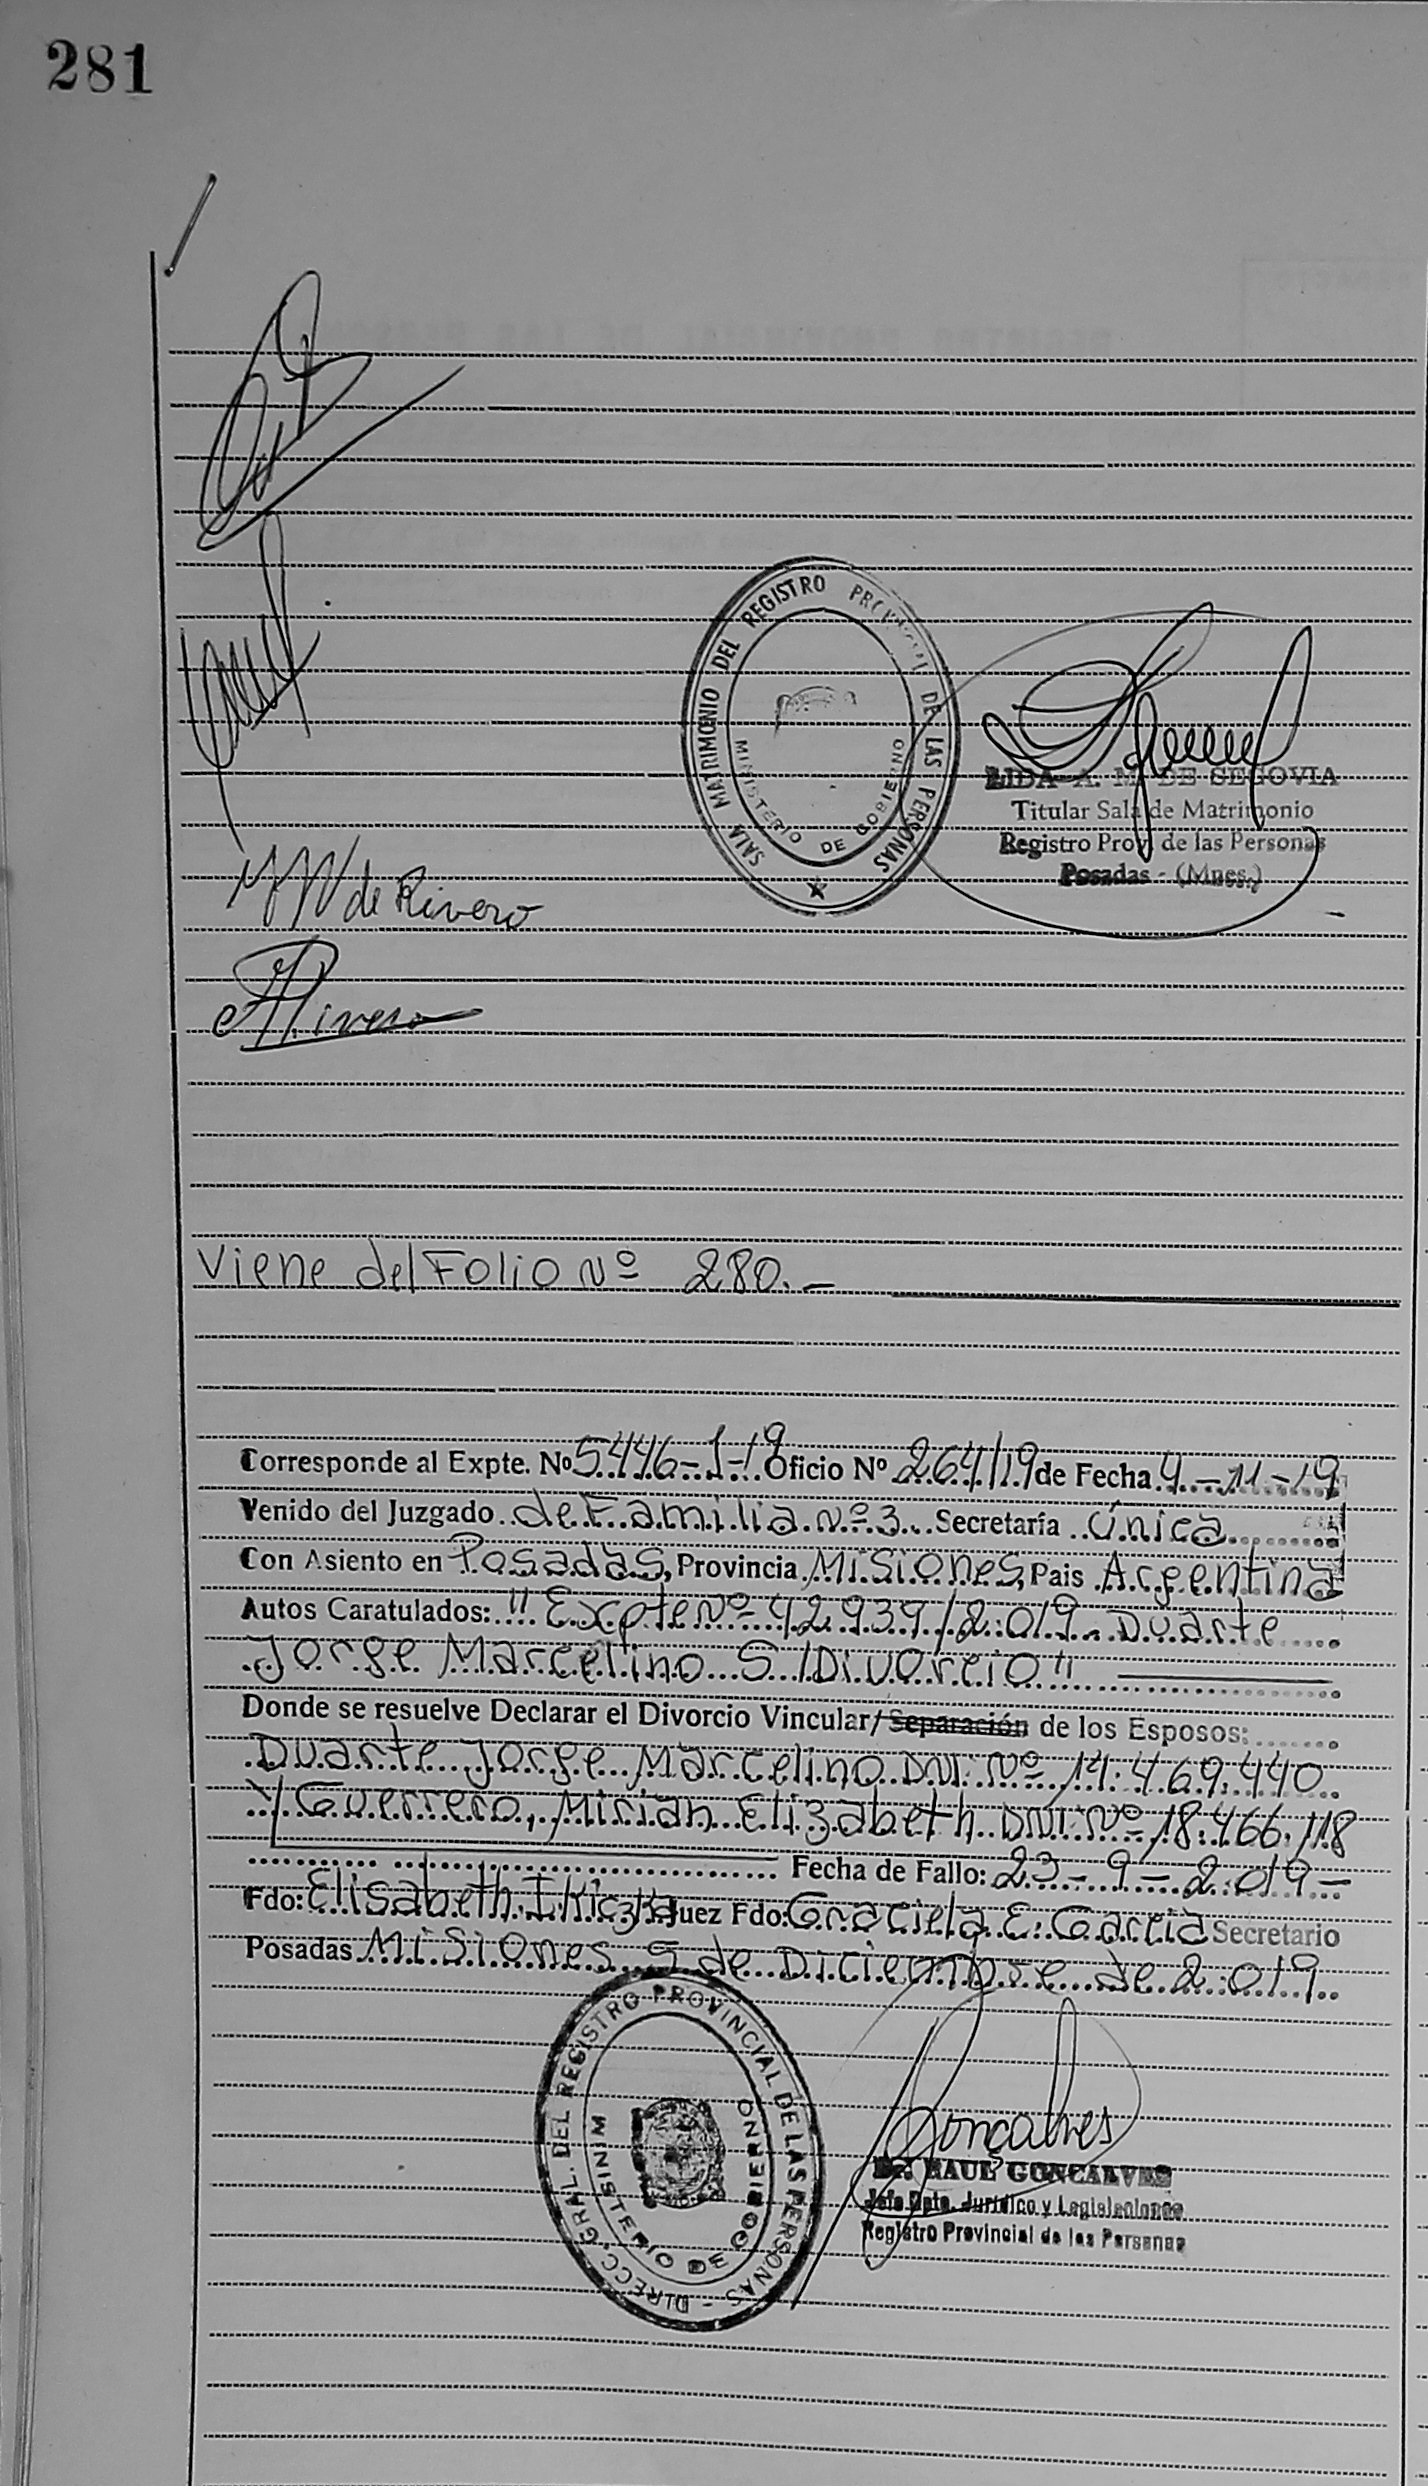 281
SALA MATRIMONIO DEL REGISTRO PROVINCIAL DE LAS PERSONAS
MINISTERIO DE GOBIERNO
LIDA A. M. DE SEGOVIA
Titular Sala de Matrimonio
Registro Prov. de las Personas
Posadas - (Mnes.)
de Rivero
Rivero
Viene del Folio Nº 280.-
Corresponde al Expte. Nº 5446-1-19 Oficio Nº 264/19 de Fecha 4-11-19
Venido del Juzgado de Familia Nº 3 Secretaría Única
Con Asiento en Posadas, Provincia Misiones, Pais Argentina
Autos Caratulados: "Expte Nº 42939/2019 Duarte
Jorge Marcelino S/Divorcio"
Donde se resuelve Declarar el Divorcio Vincular/Separación de los Esposos:
Duarte Jorge Marcelino DNI Nº 14.469.440
Y Guerrero, Mirian Elizabeth DNI Nº 18.466.118
Fecha de Fallo: 23-9-2019-
Fdo: Elisabeth Juez Fdo: Graciela E. Garcia Secretario
Posadas Misiones 5 de Diciembre de 2019
DIRECC. GRAL. DEL REGISTRO PROVINCIAL DE LAS PERSONAS -
MINISTERIO DE GOBIERNO
Gonçalves
Dr. RAUL GONCALVES
Jefe Dpto. Jurídico y Legislaciones
Registro Provincial de las Personas